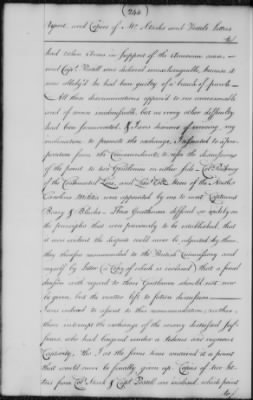 (244)
Report and Copies of Mr and Letters
had taken Arms in support of the American cause,
and Capt was declared unexchangeable, because it
was alledg'd he had been guilty of a breach of parole —
All these discriminations appear'd to me unreasonable
and of some inadmissible, but as every other difficulty
had been surmounted, & I was desirous of evincing my
inclination to promote the exchange, I assented to a pro-
position from the Commandant to refer the discussions
of the point to two Gentlemen on either side. Col
of the Continental Line, and Lieut Col of the North
Carolina Militia was appointed by me to meet Captains
Barry & — These Gentlemen differed so widely on
the principles that were previously to be established, that
it was evident the dispute could never be adjusted by them
they therefore recommended to the British Commissary and
myself by letter (a Copy of which is inclosed) that a final
decision with regard to these Gentlemen should not now
be given, but the matter left to future discussion —
I was induced to assent to this recommendation, rather
than interrupt the exchange of the many distressed pris-
oners who had languish'd under a tedious and rigorous
Captivity, tho' I at the same time assured it a point
that would never be finally given up. Copies of two let-
ters from Col & Capt are inclosed which point